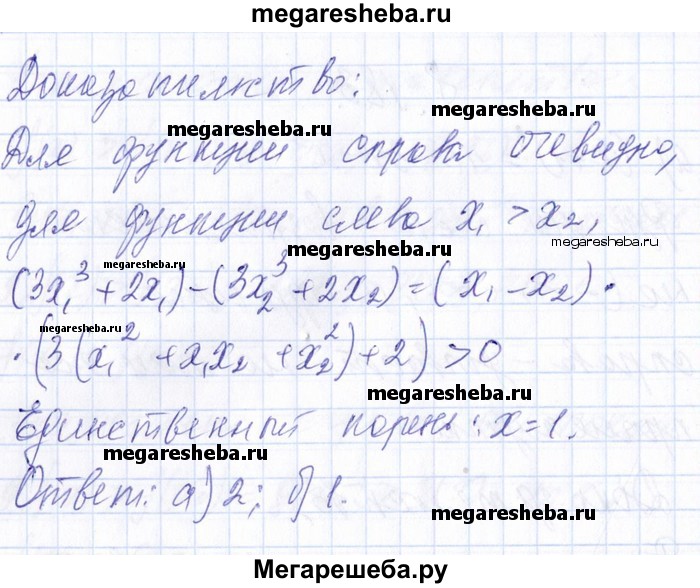 megaresheba.ru
Доказательство:
megaresheba.ru
megaresheba.ru
Для функции справа очевидно,
для функции слева x₁ > x₂,
megaresheba.ru
megaresheba.ru
(3x₁³ + 2x₁) - (3x₂³ + 2x₂) = (x₁ - x₂) ·
megaresheba.ru
· (3(x₁² + x₁x₂ + x₂²) + 2) > 0
megaresheba.ru
Единственный корень: x = 1.
megaresheba.ru
Ответ: а) 2; б) 1.
megaresheba.ru
Мегарешеба.ру